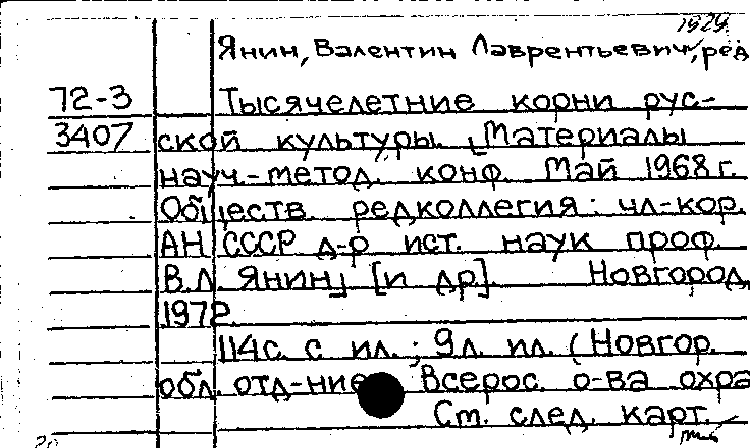 1929
Янин, Валентин Лаврентьевич, ред
72-3 Тысячелетние корни рус-
3407 ской культуры. Материалы
науч.-метод. конф. Май 1968г.
Обществ. редколлегия: чл-кор.
АН СССР д-р ист. наук проф.
В.Л. Янин [и др]. Новгород,
1972.
114с. с ил.; 9л. ил. (Новгор.
обл. отд-ние Всерос. о-ва охра
См. след. карт.